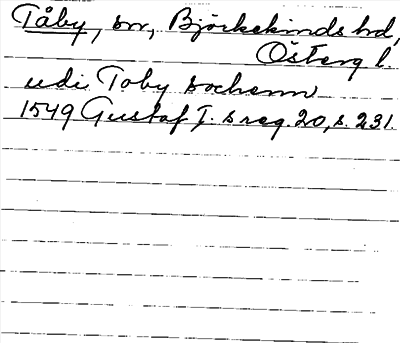 Tåby, sn, Björkekinds hd,
Österg l.
udi Toby sochenn
1549 Gustaf I:s reg. 20, s. 231.